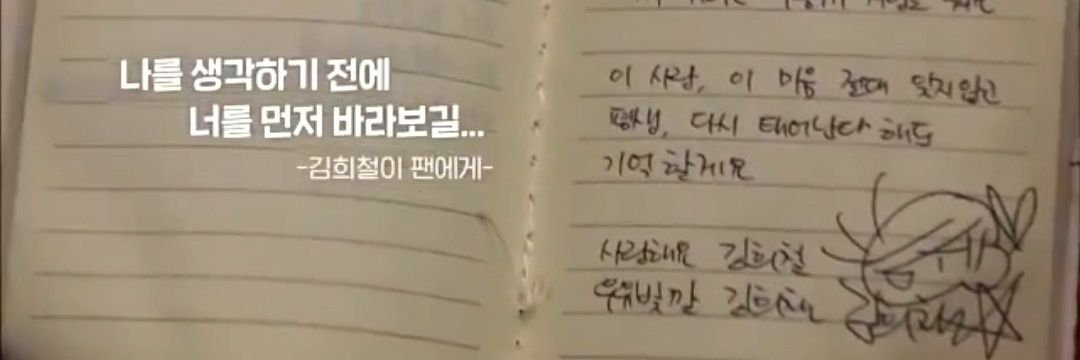 나를 생각하기 전에
너를 먼저 바라보길...
-김희철이 팬에게-
이 사랑, 이 마음 절대 잊지않고
평생, 다시 태어난다 해도
기억할게요
사랑해요 김희철
우유빛깔 김희철